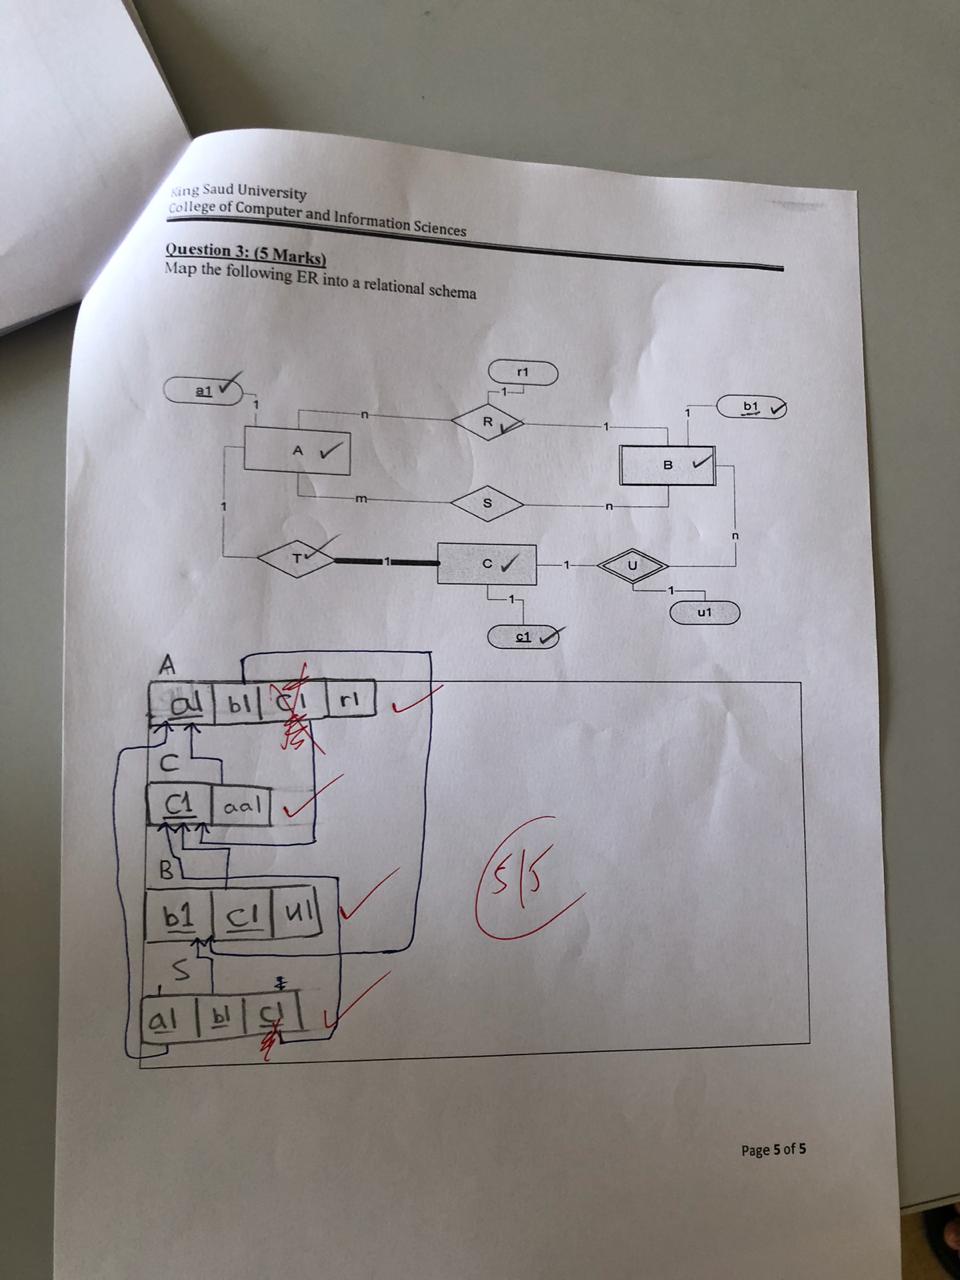 King Saud University
College of Computer and Information Sciences
Question 3: (5 Marks)
Map the following ER into a relational schema
r1
a1
1
1
b1
1
n
R
1
A
B
m
S
n
1
n
T
1
C
1
U
1
1
u1
c1
A
a1 b1 c1 r1
C
C1 aa1
B
b1 c1 u1
5/5
S
a1 b1 c1
Page 5 of 5